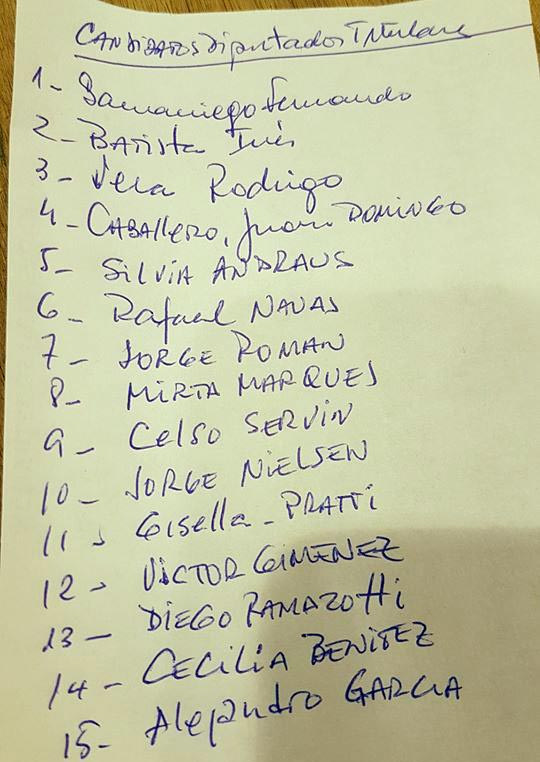 CANDIDATOS Diputados Titulares
1- Samaniego Fernando
2- BATista Inés
3- Vera Rodrigo
4- CABAllERO, Juan DOMINGO
5- SilviA ANDRAUS
6- Rafael NAVAS
7- JORGE ROMAN
8- MIRTA MARQUES
9- Celso SERVIN
10- JORGE NIELSEN
11- GISella - PRATTi
12- VICTOR GIMENEZ
13- DIEGO RAMAZOtti
14- CECILIA BENITEZ
15- Alejandro GARCIA